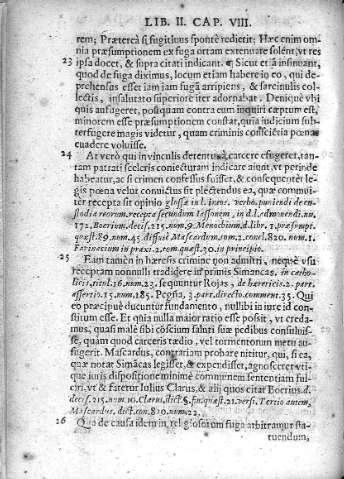 LIB. II. CAP. VIII.
rem; Prætereà si fugitiuus spontè redierit; Hæc enim om-
nia præsumptionem ex fuga ortam extenuare solent, vt res
23 ipsa docet, & supra citati indicant. ¶ Sicut et à insinuant,
quod de fuga diximus, locum etiam habere in eo, qui de-
præhensus esset iam iam fugã arripiens, & sarcinulis col-
lectis, insalutato superiore iter adornabat. Deniquè vbi
quis aufugeret, postquam contra eum inquiri cæptum est,
minorem esse præsumptionem constat, quia iudicium sub-
terfugere magis videtur, quam criminis consciẽtia pœnã
euadere voluisse.
24 At verò qui in vinculis detentus, à carcere effugeret, tan-
tam patrati sceleris coniecturam indicare aiunt, vt perindè
habeatur, ac si crimen confessus fuisset, & consequẽtèr le-
gis pœna velut conuictus sit plectendus ea, quæ commu-
ter recepta sit opinio glossæ in l. in eos. verbo. puniendi de cu-
stodia reorum. recepta secundum Iassonem, in d. l. admonendi. nu.
172. Boerium. decis. 215. num. 9. Menochium. d. libr. 1. præsumpt.
quæst. 89. num. 45. diffusè Mascardum. sum. 2. concl. 820. num. 1.
Farinacium in praxi. 2. tom. quæst. 30. in principio.
25 Eam tamèn in hæresis crimine non admitti, nequè vsu
receptam nonnulli tradidere in primis Simancas. in catho-
licis, titul. 16. num. 22. sequuntur Rojas, de hæreticis. 2. part.
assertio. 15. num. 185. Pegña, 3. part. directo. comment. 35. Qui
eo præcipuè ducuntur fundamento, nullibi in iure id con-
stitum esse. Et quia nulla maior ratio esse possit, vt creda-
mus, quasi malè sibi consciũm saluti suæ pedibus consuluis-
se, quam quod carceris tædio, vel tormentorum metu au-
fugerit. Mascardus, contrarium probare nititur, qui, si ea,
quæ notat Simãcas legisset, & expendisset, agnosceret vti-
que iuris dispositione minimè communem sententiam ful-
ciri, vt & fatetur Iulius Clarus, & alij quos citat Boerius. d.
decis. 215. num. 10. Clarus, dict. §. fin. quæst. 21. versi. Tertio autem,
Mascardus. dict. con. 820. num. 22.
26 Qua de causa idem in religiosorum fuga arbitramur sta-
tuendum,